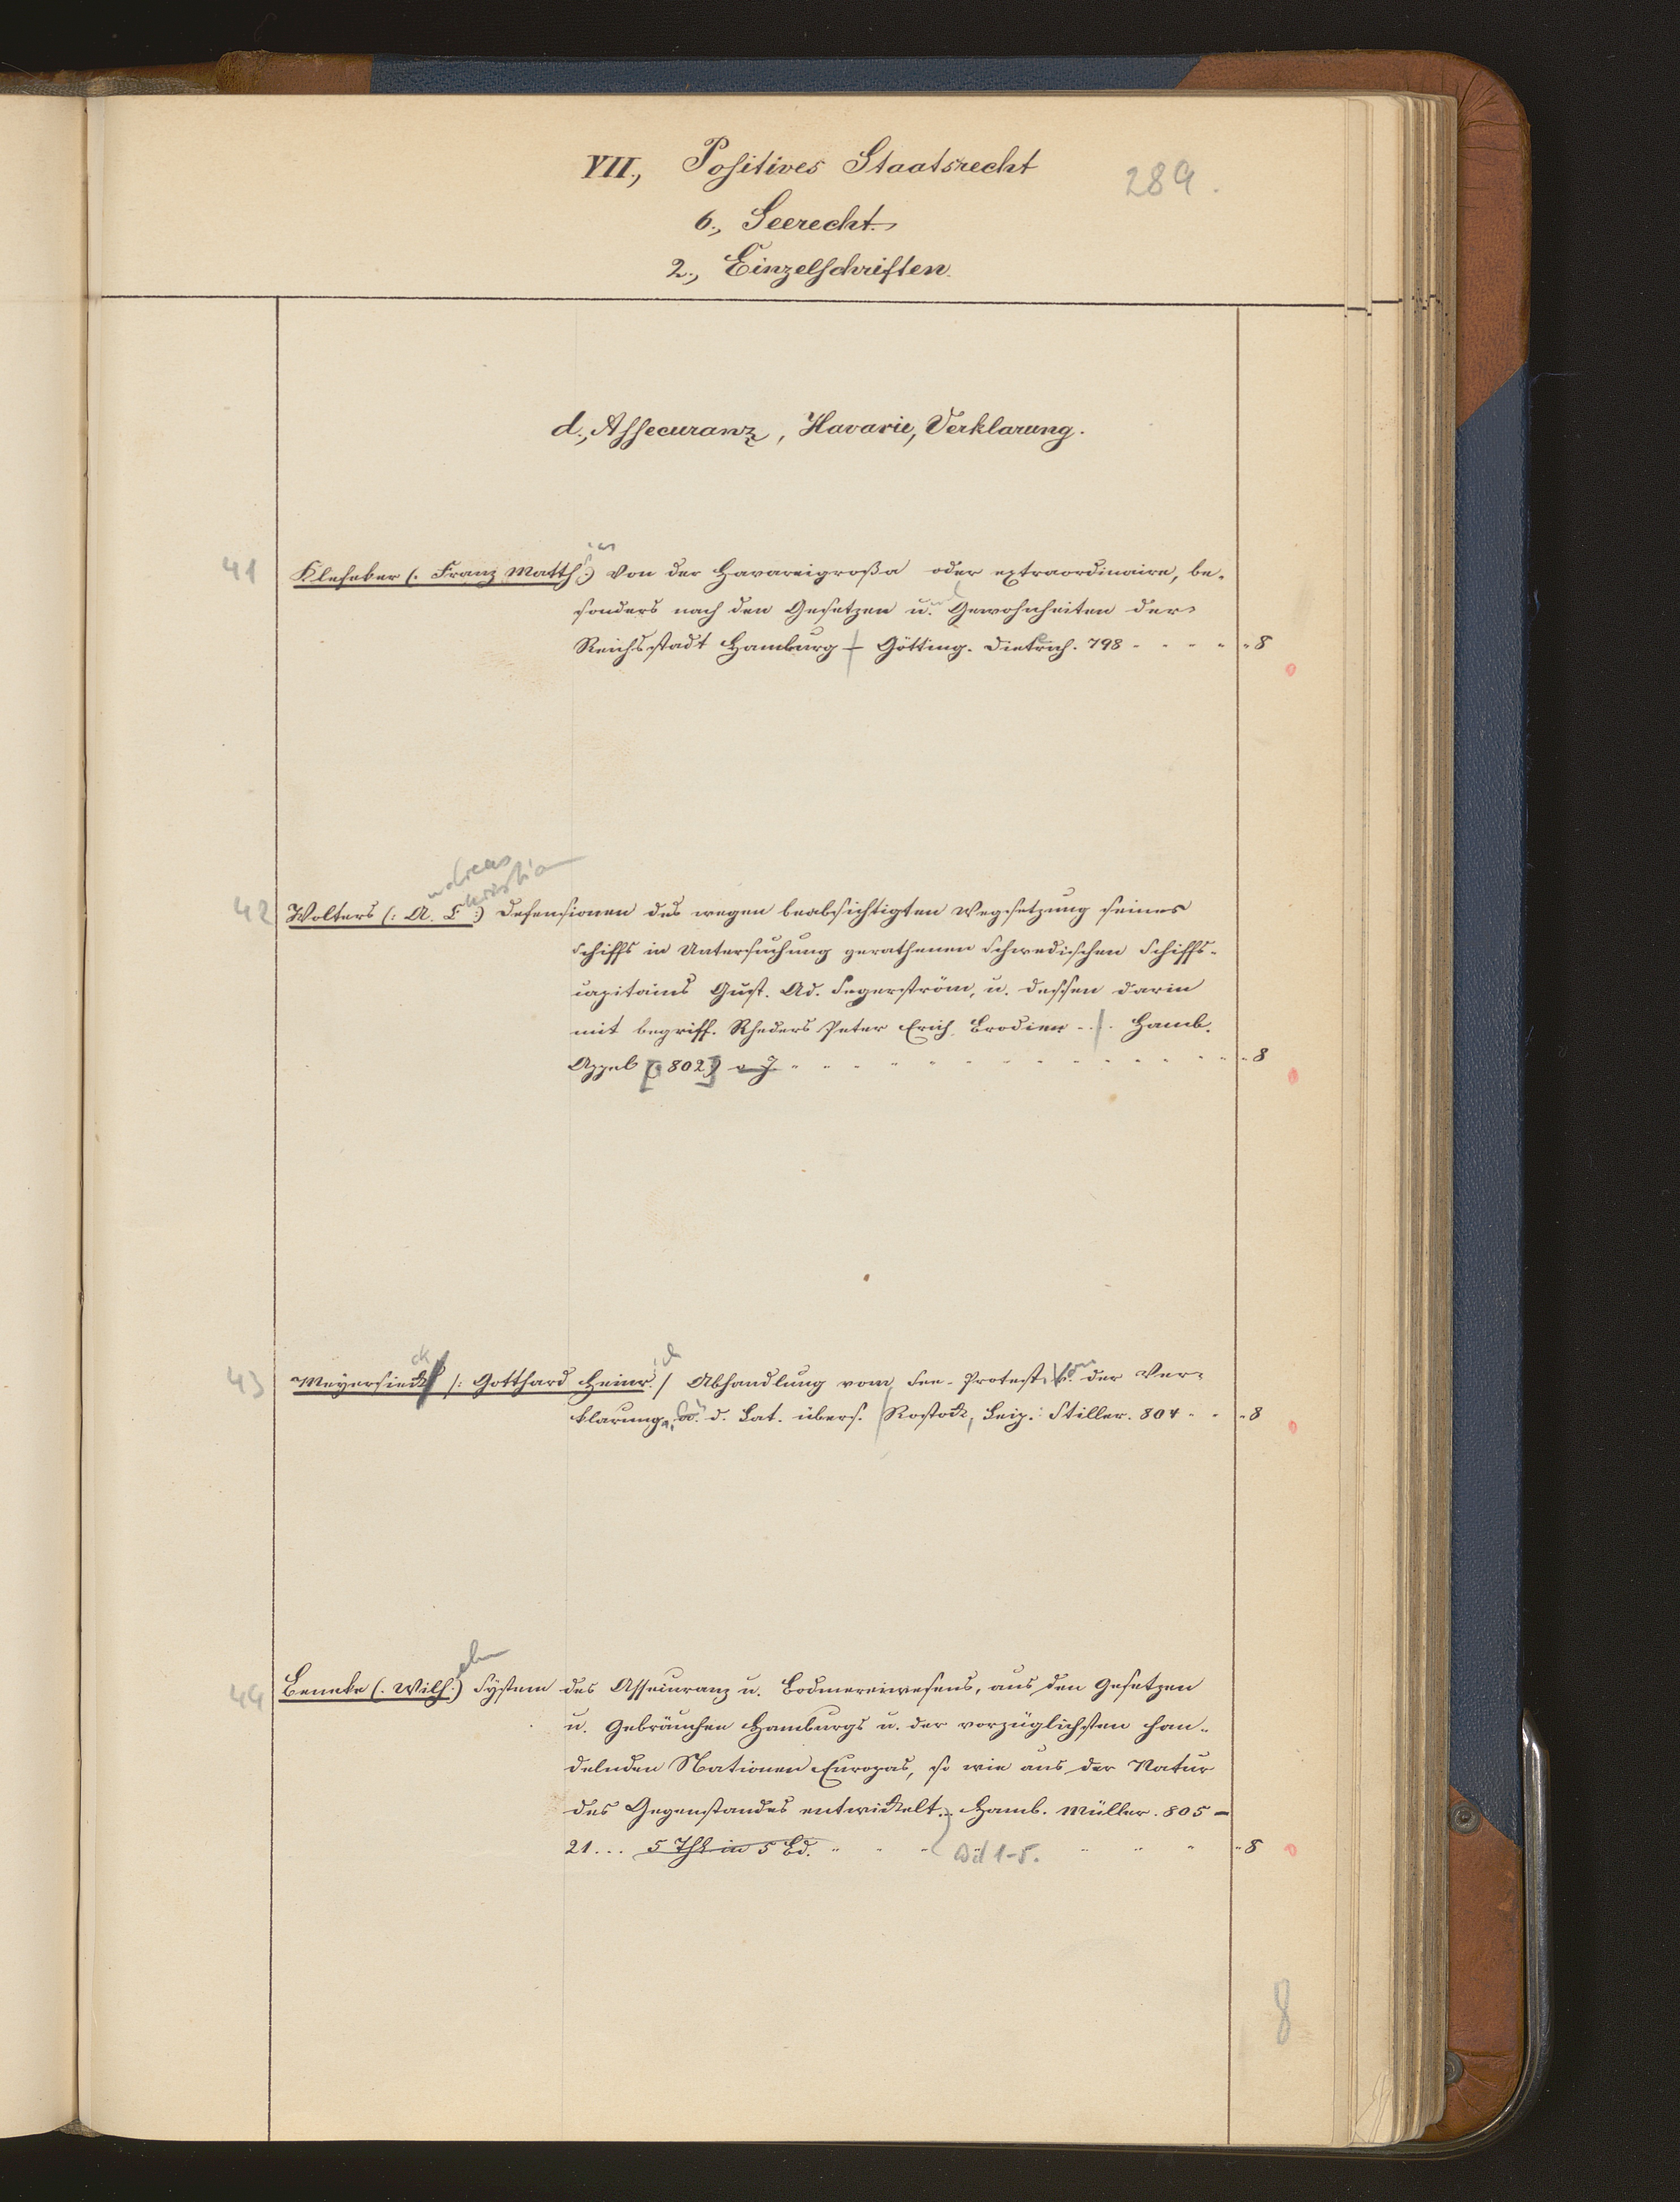 VII., Positives Staatsrecht
289.
6., Seerecht.
2., Einzelschriften.
d., Assecuranz, Havarie, Verklarung.
41
ias
Klefeker (: Franz Matth:) Von der Havareigroßa oder extraordinaire, be-
sonders nach den Gesetzen u. Gewohnheiten der
Reichsstadt Hamburg - Götting. Dietrich. 798 8
ndreas
hristia
42 Wolters (: A. C :) Defensionen des wegen beabsichtigten Wegsetzung seines
Schiffs in Untersuchung gerathenen Schwedischen Schiffs-
capitains Gust. Ad. Segerström, u. dessen darin
mit begriff. Rheders Peter Erich Brodier - Hamb.
Appel [802] 8
ck
ich
43 Meyersieck /: Gotthard Heinr. / Abhandlung vom See-Protest, o. der Ver-
klarung, a. d. Lat. übers. Rostock, Leip: Stiller. 804 8
elm
44 Beneke (: Wilh:) System des Assecuranz u. Bodmereiwesens, aus den Gesetzen
u. Gebräuchen Hamburgs u. der vorzüglichsten han-
delnden Nationen Europas, so wie aus der Natur
des Gegenstandes entwickelt. Hamb. Müller. 805 -
21... 5 Thl in 5 Bd. Bd 1-5. 8
8